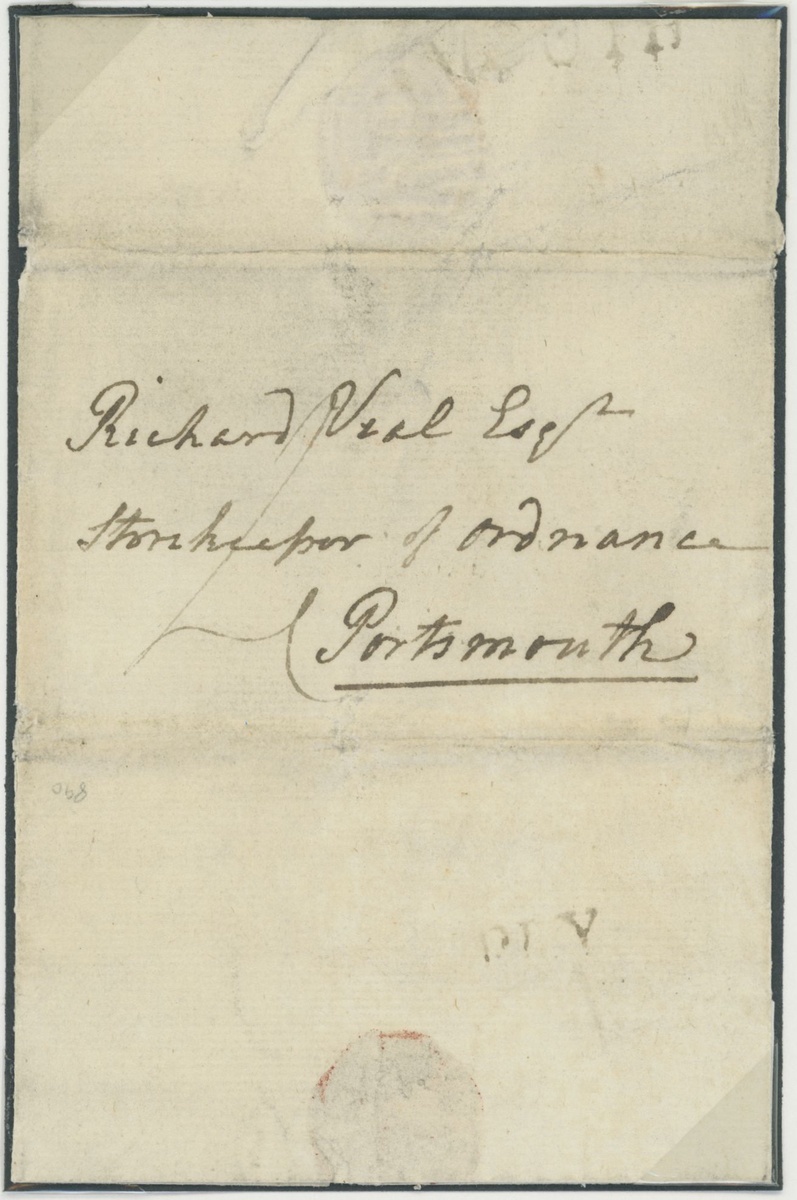 Richard Veal Esqr
Storekeeper of Ordnance
Portsmouth
890